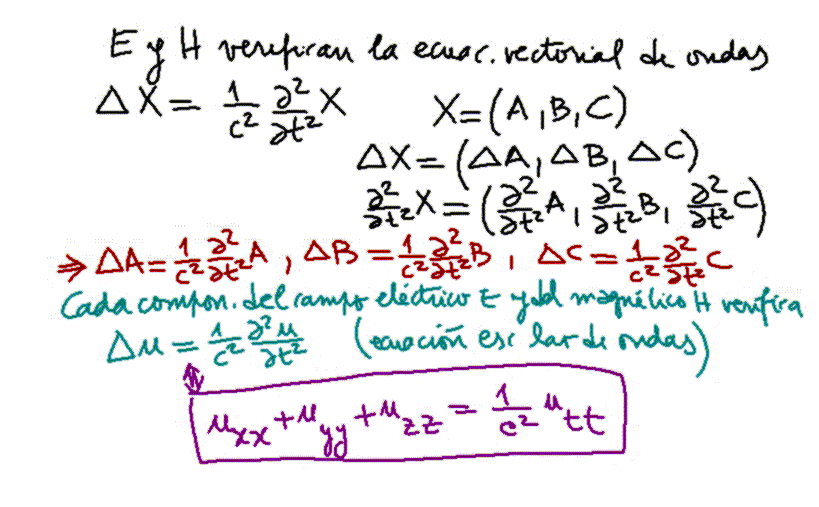 E y H verifican la ecuac. vectorial de ondas
ΔX = 1/c² ∂²/∂t² X X=(A,B,C)
ΔX = (ΔA, ΔB, ΔC)
∂²/∂t² X = (∂²/∂t² A, ∂²/∂t² B, ∂²/∂t² C)
⇒ ΔA = 1/c² ∂²/∂t² A, ΔB = 1/c² ∂²/∂t² B, ΔC = 1/c² ∂²/∂t² C
Cada compon. del campo eléctrico E y del magnético H verifica
Δu = 1/c² ∂²u/∂t² (ecuación esc lar de ondas)
⇕
u_xx + u_yy + u_zz = 1/c² u_tt